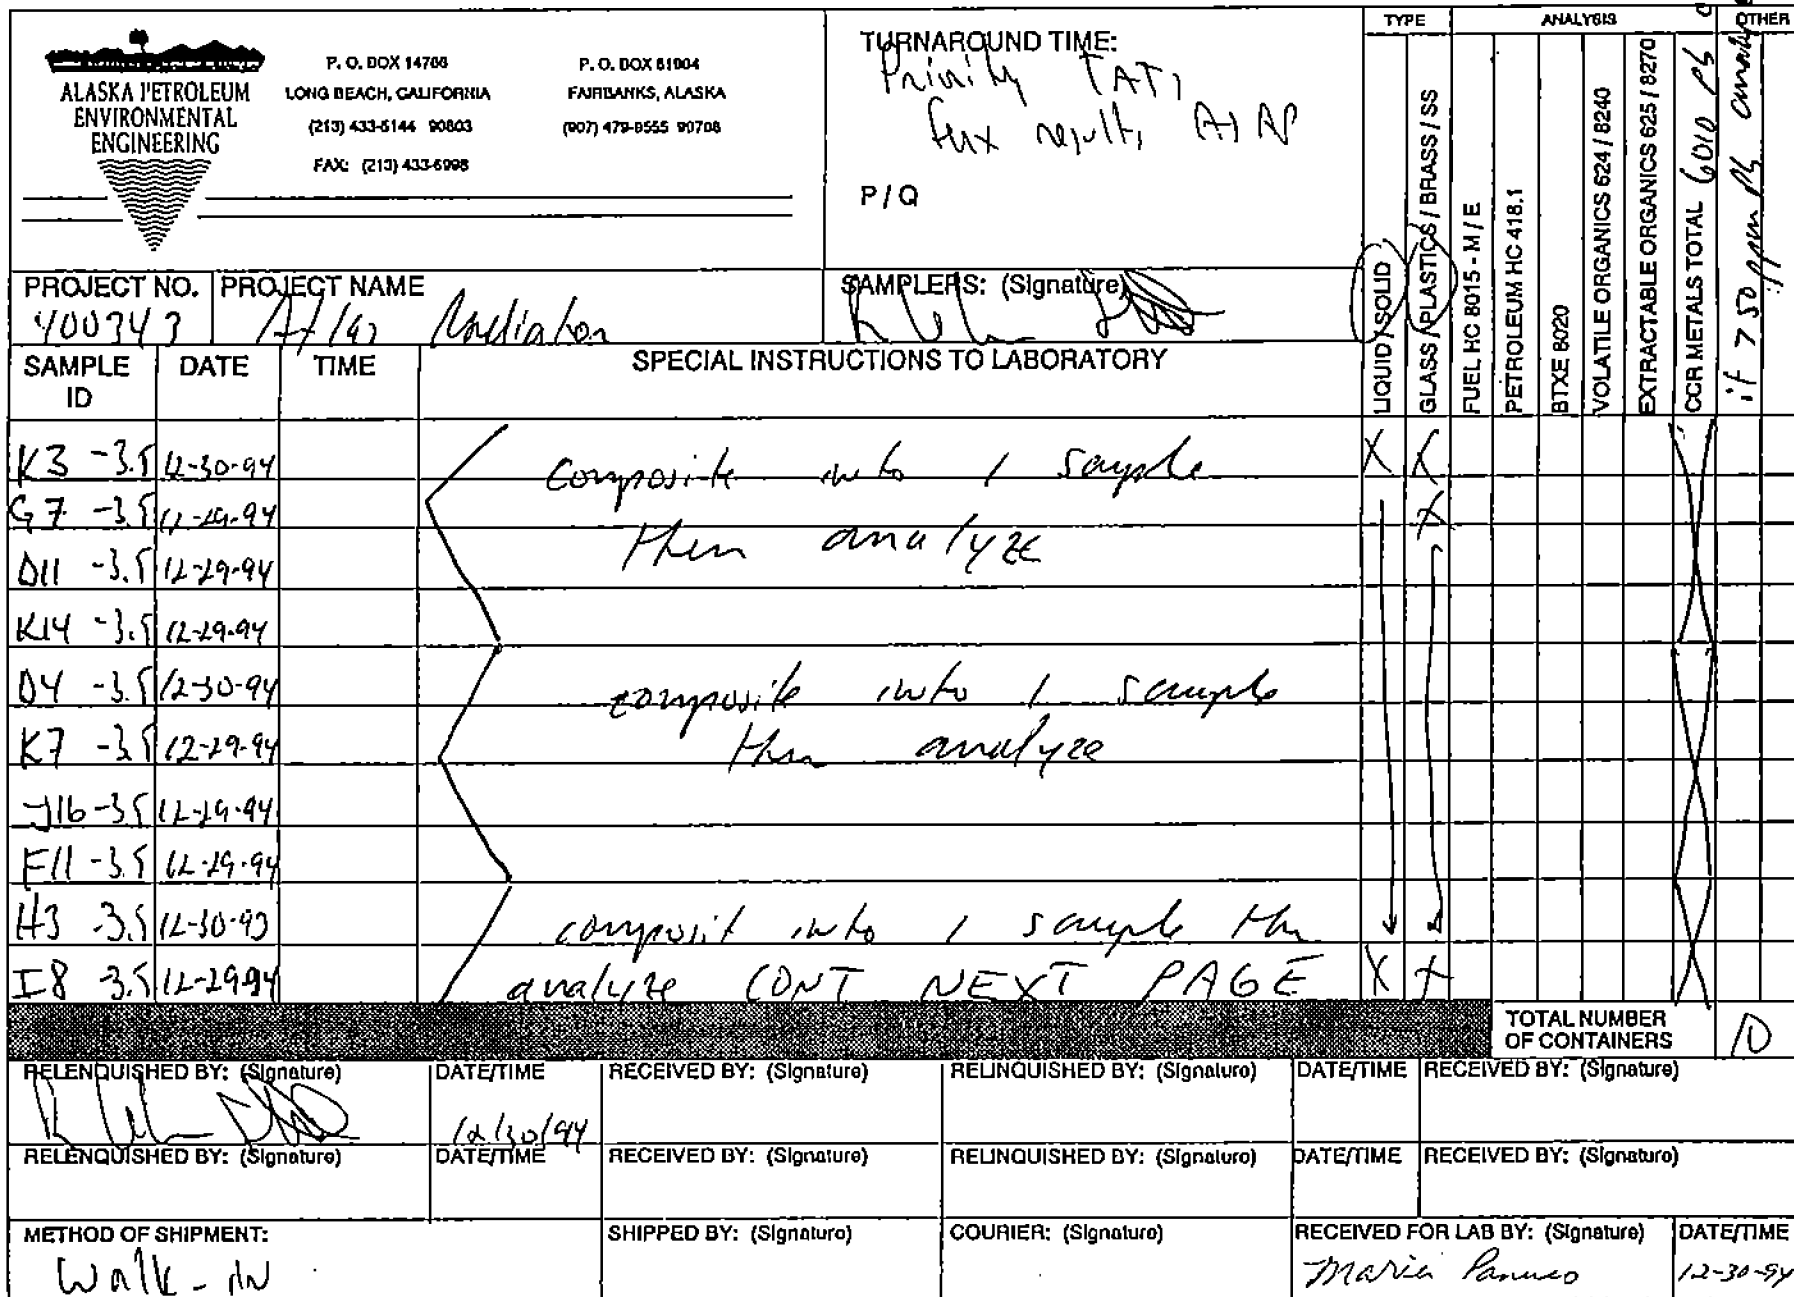 ALASKA PETROLEUM
ENVIRONMENTAL
ENGINEERING
P. O. BOX 14766
LONG BEACH, CALIFORNIA
(213) 433-5144 90803
FAX: (213) 433-5998
P. O. BOX 81904
FAIRBANKS, ALASKA
(907) 479-8555 90708
TURNAROUND TIME:
TAT,
fax results ASAP
P / Q
TYPE
ANALYSIS
OTHER
LIQUID / SOLID
GLASS / PLASTICS / BRASS / SS
FUEL HC 8015 - M / E
PETROLEUM HC 418.1
BTXE 8020
VOLATILE ORGANICS 624 / 8240
EXTRACTABLE ORGANICS 625 / 8270
CCR METALS TOTAL 6010 Pb
if 750 ppm Pb
PROJECT NO.
400343
PROJECT NAME
Atlas
SAMPLERS: (Signature)
SAMPLE ID
DATE
TIME
SPECIAL INSTRUCTIONS TO LABORATORY
K3 -3.5 12-30-94 composite into 1 sample X X
G7 -3.5 12-29-94 X
then analyze
D11 -3.5 12-29-94
K14 -3.5 12-29-94
D4 -3.5 12-30-94 composite into 1 sample
K7 -3.5 12-29-94 then analyze
J16 -3.5 12-29-94
F11 -3.5 12-29-94
H3 -3.5 12-30-93 composit into 1 sample then
I8 3.5 12-29-94 analyze CONT NEXT PAGE X X
TOTAL NUMBER
OF CONTAINERS
10
RELENQUISHED BY: (Signature)
DATE/TIME
12/30/94
RECEIVED BY: (Signature)
RELINQUISHED BY: (Signature)
DATE/TIME
RECEIVED BY: (Signature)
RELENQUISHED BY: (Signature)
DATE/TIME
RECEIVED BY: (Signature)
RELINQUISHED BY: (Signature)
DATE/TIME
RECEIVED BY: (Signature)
METHOD OF SHIPMENT:
Walk-in
SHIPPED BY: (Signature)
COURIER: (Signature)
RECEIVED FOR LAB BY: (Signature)
Maria Panuco
DATE/TIME
12-30-94